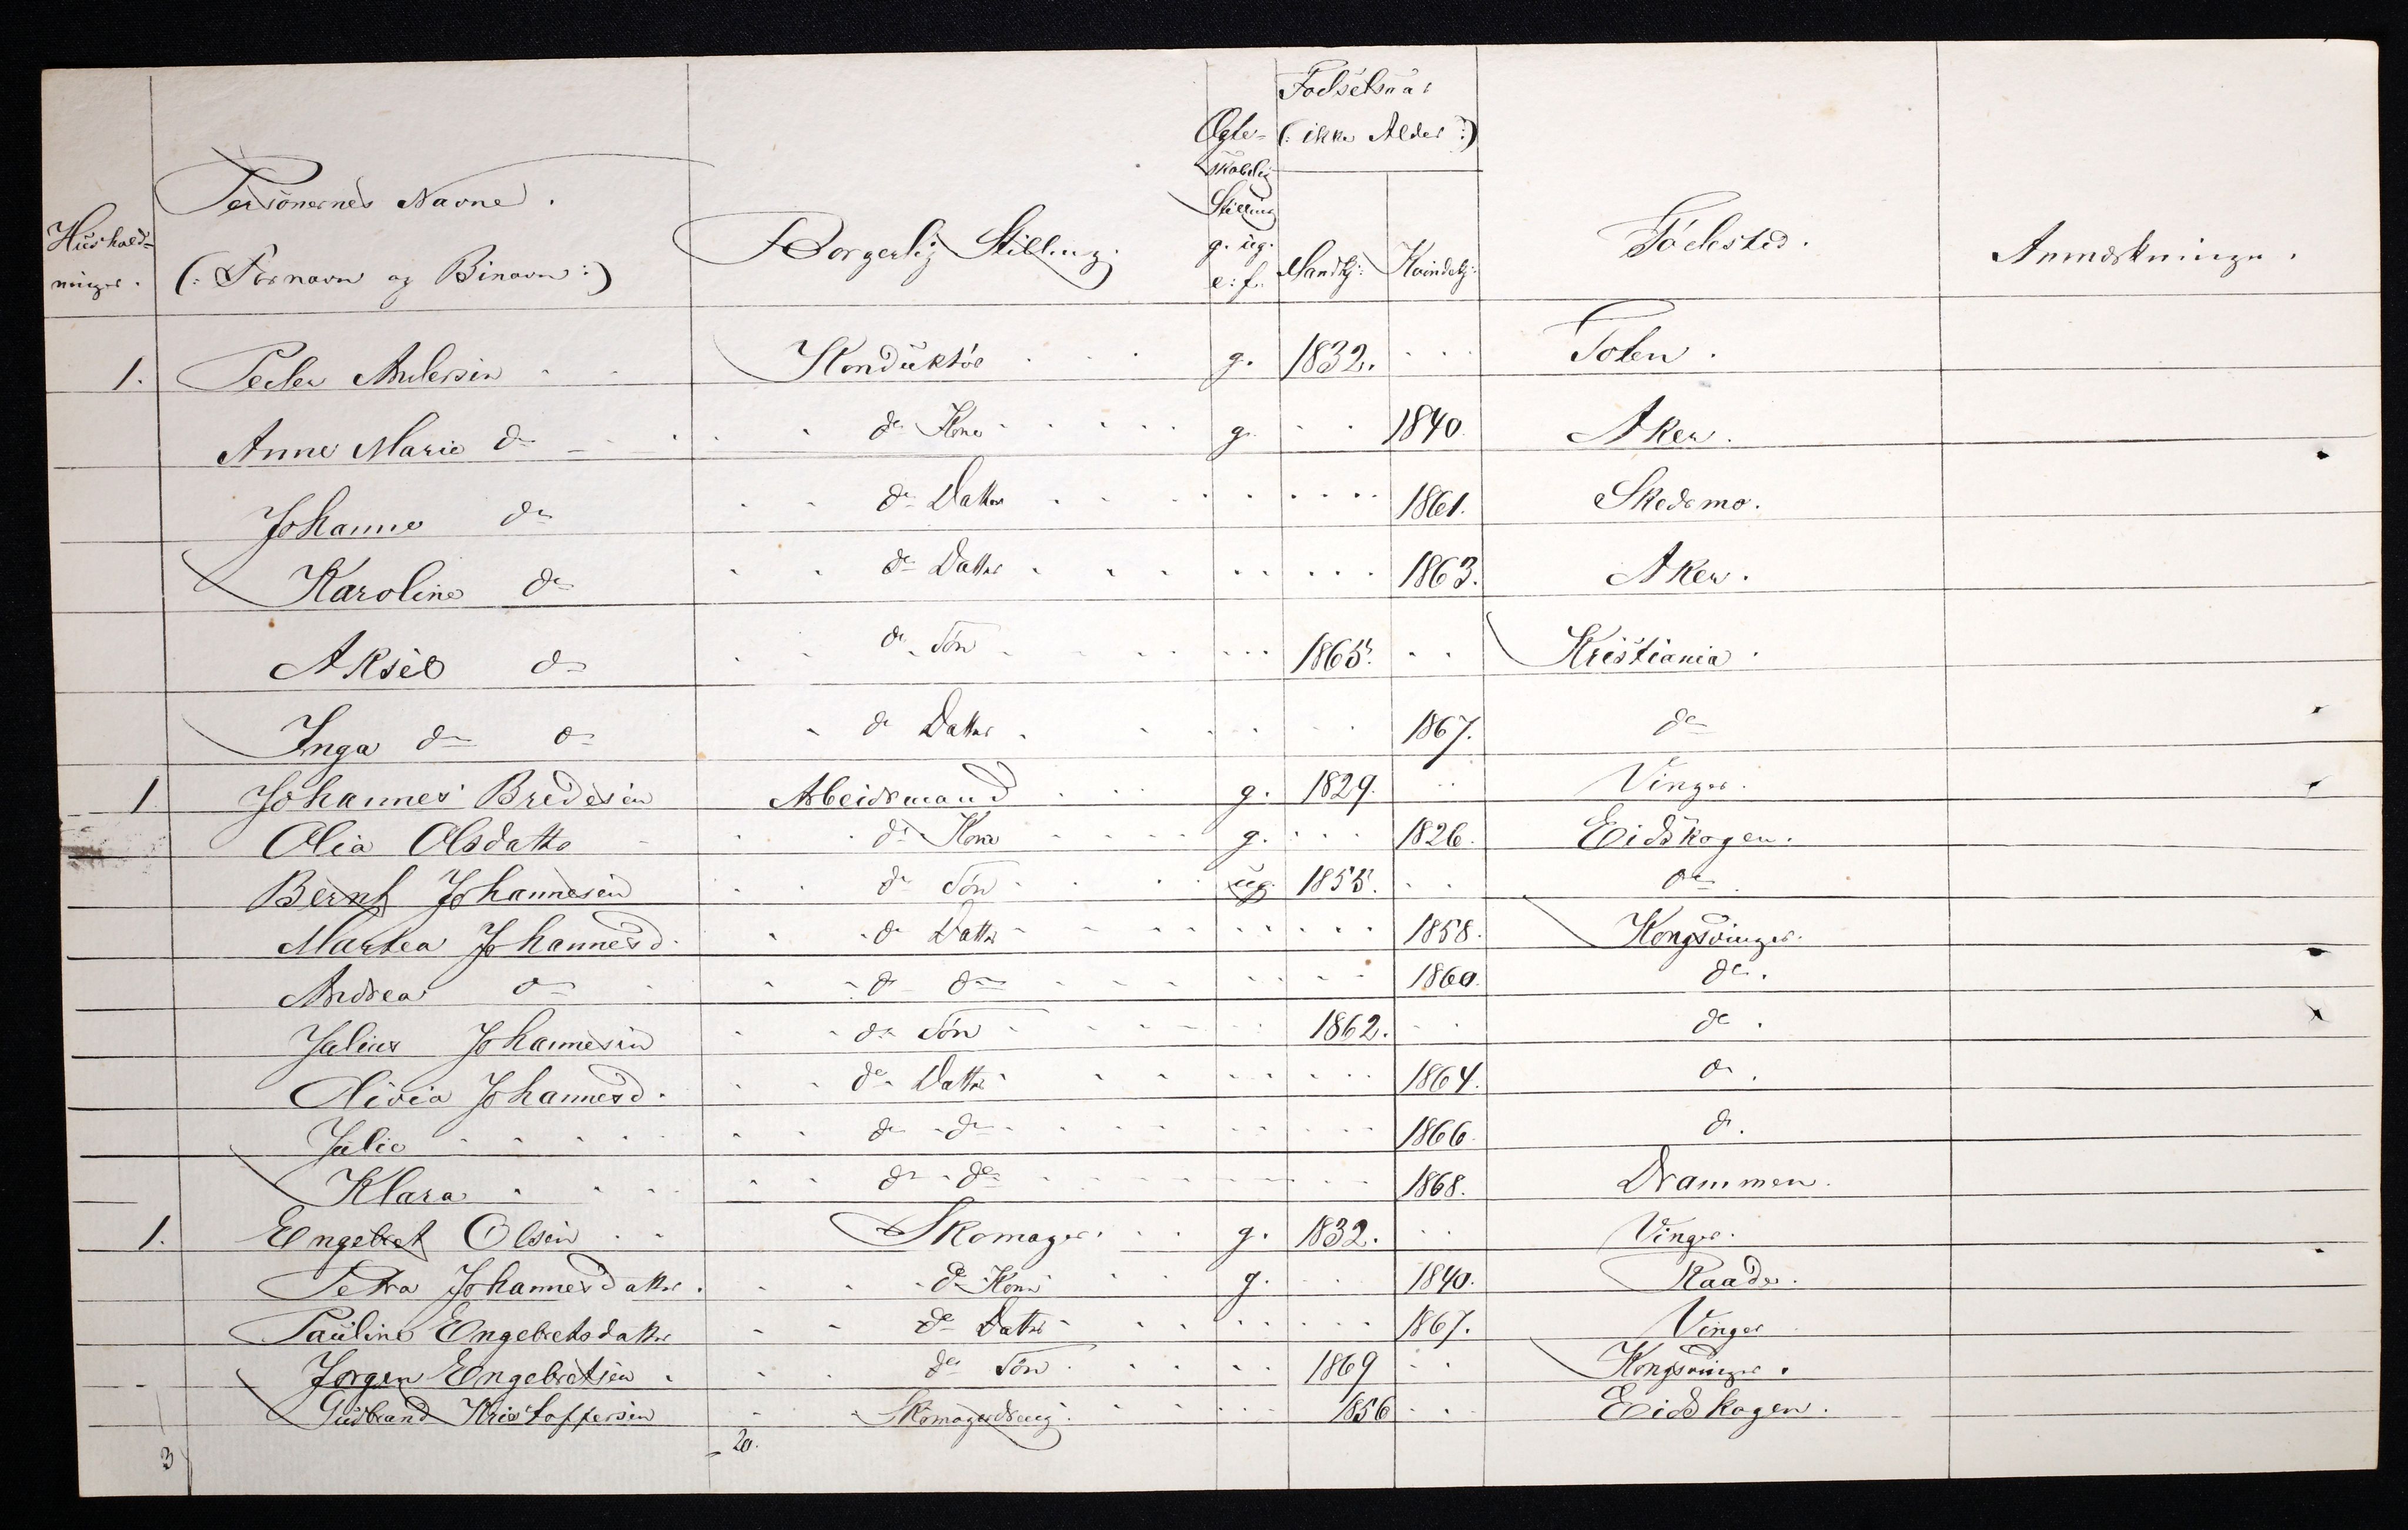 Fødselsaar
Ægte- (: ikke Alder :)
skabelig
Stilling
Personernes Navne.
Hushold-
ninger. (: Fornavn og Binavn :) Borgerlig Stilling. g. ug. e: f. Mandkj: Kvindekj: Fødested. Anmærkninger.
1. Peder Andersen Konduktør g. 1832. Toten.
Anne Marie do do Kone g. 1840. Aker.
Johanne do do Datter 1861. Skedsmo.
Karoline do do Datter 1863. Aker.
Aksel do do Søn 1865. Kristiania.
Inga do do do Datter 1867. do
1 Johannes Bredesen Arbeidsmand g. 1829. Vinger.
Olia Olsdatter do Kone g. 1826. Eidskogen.
Bernt Johannesen do Søn ug. 1855. do
Martea Johannesd. do Datter 1858. Kongsvinger.
Andrea do do do 1860. do.
Julius Johannesen do Søn 1862. do.
Olivia Johannesd. do Datter 1864. do.
Julie do do 1866. do.
Klara do do 1868. Drammen.
1. Engebret Olsen Skomager. g. 1832. Vinger.
Petra Johannesdatter. do Kone g. 1840. Raade.
Pauline Engebretsdatter do Datter 1867. Vinger
Jørgen Engebretsen do Søn 1869 Kongsvinger.
Gudbrand Kristoffersen Skomagerdreng. 1856 Eidskogen.
3 20.